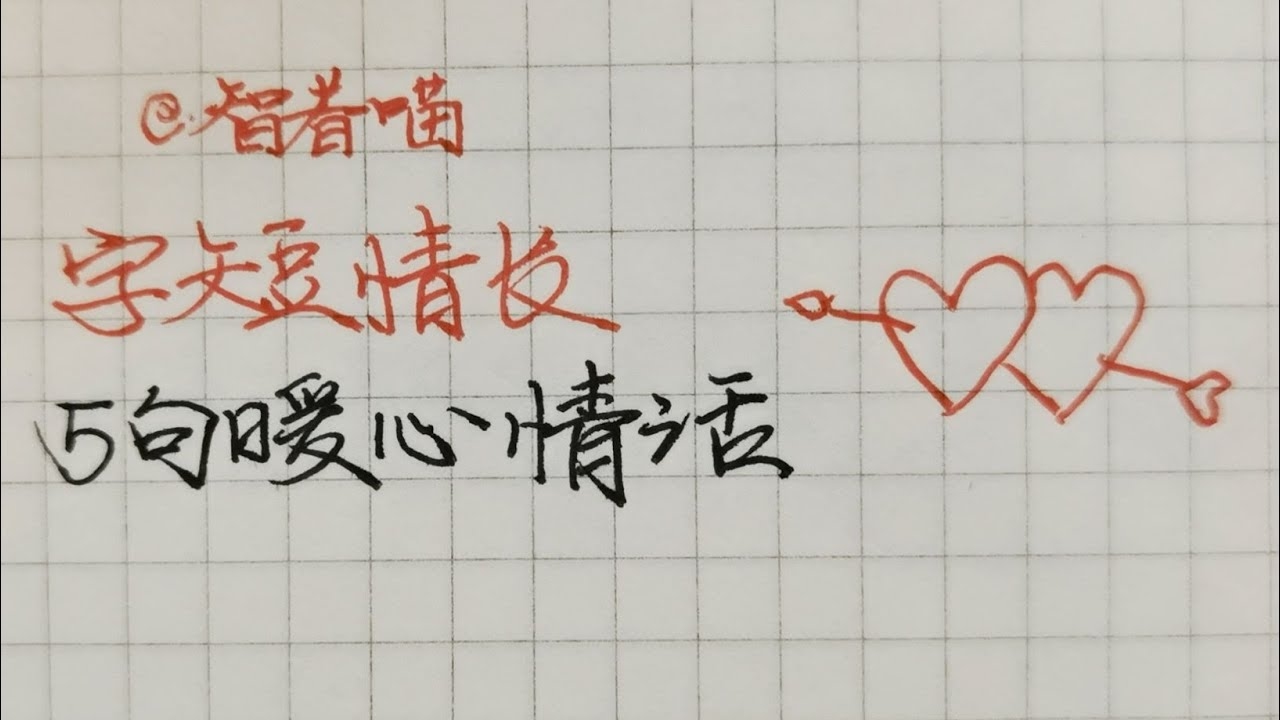 @智者喵
字短情长
5句暖心情话